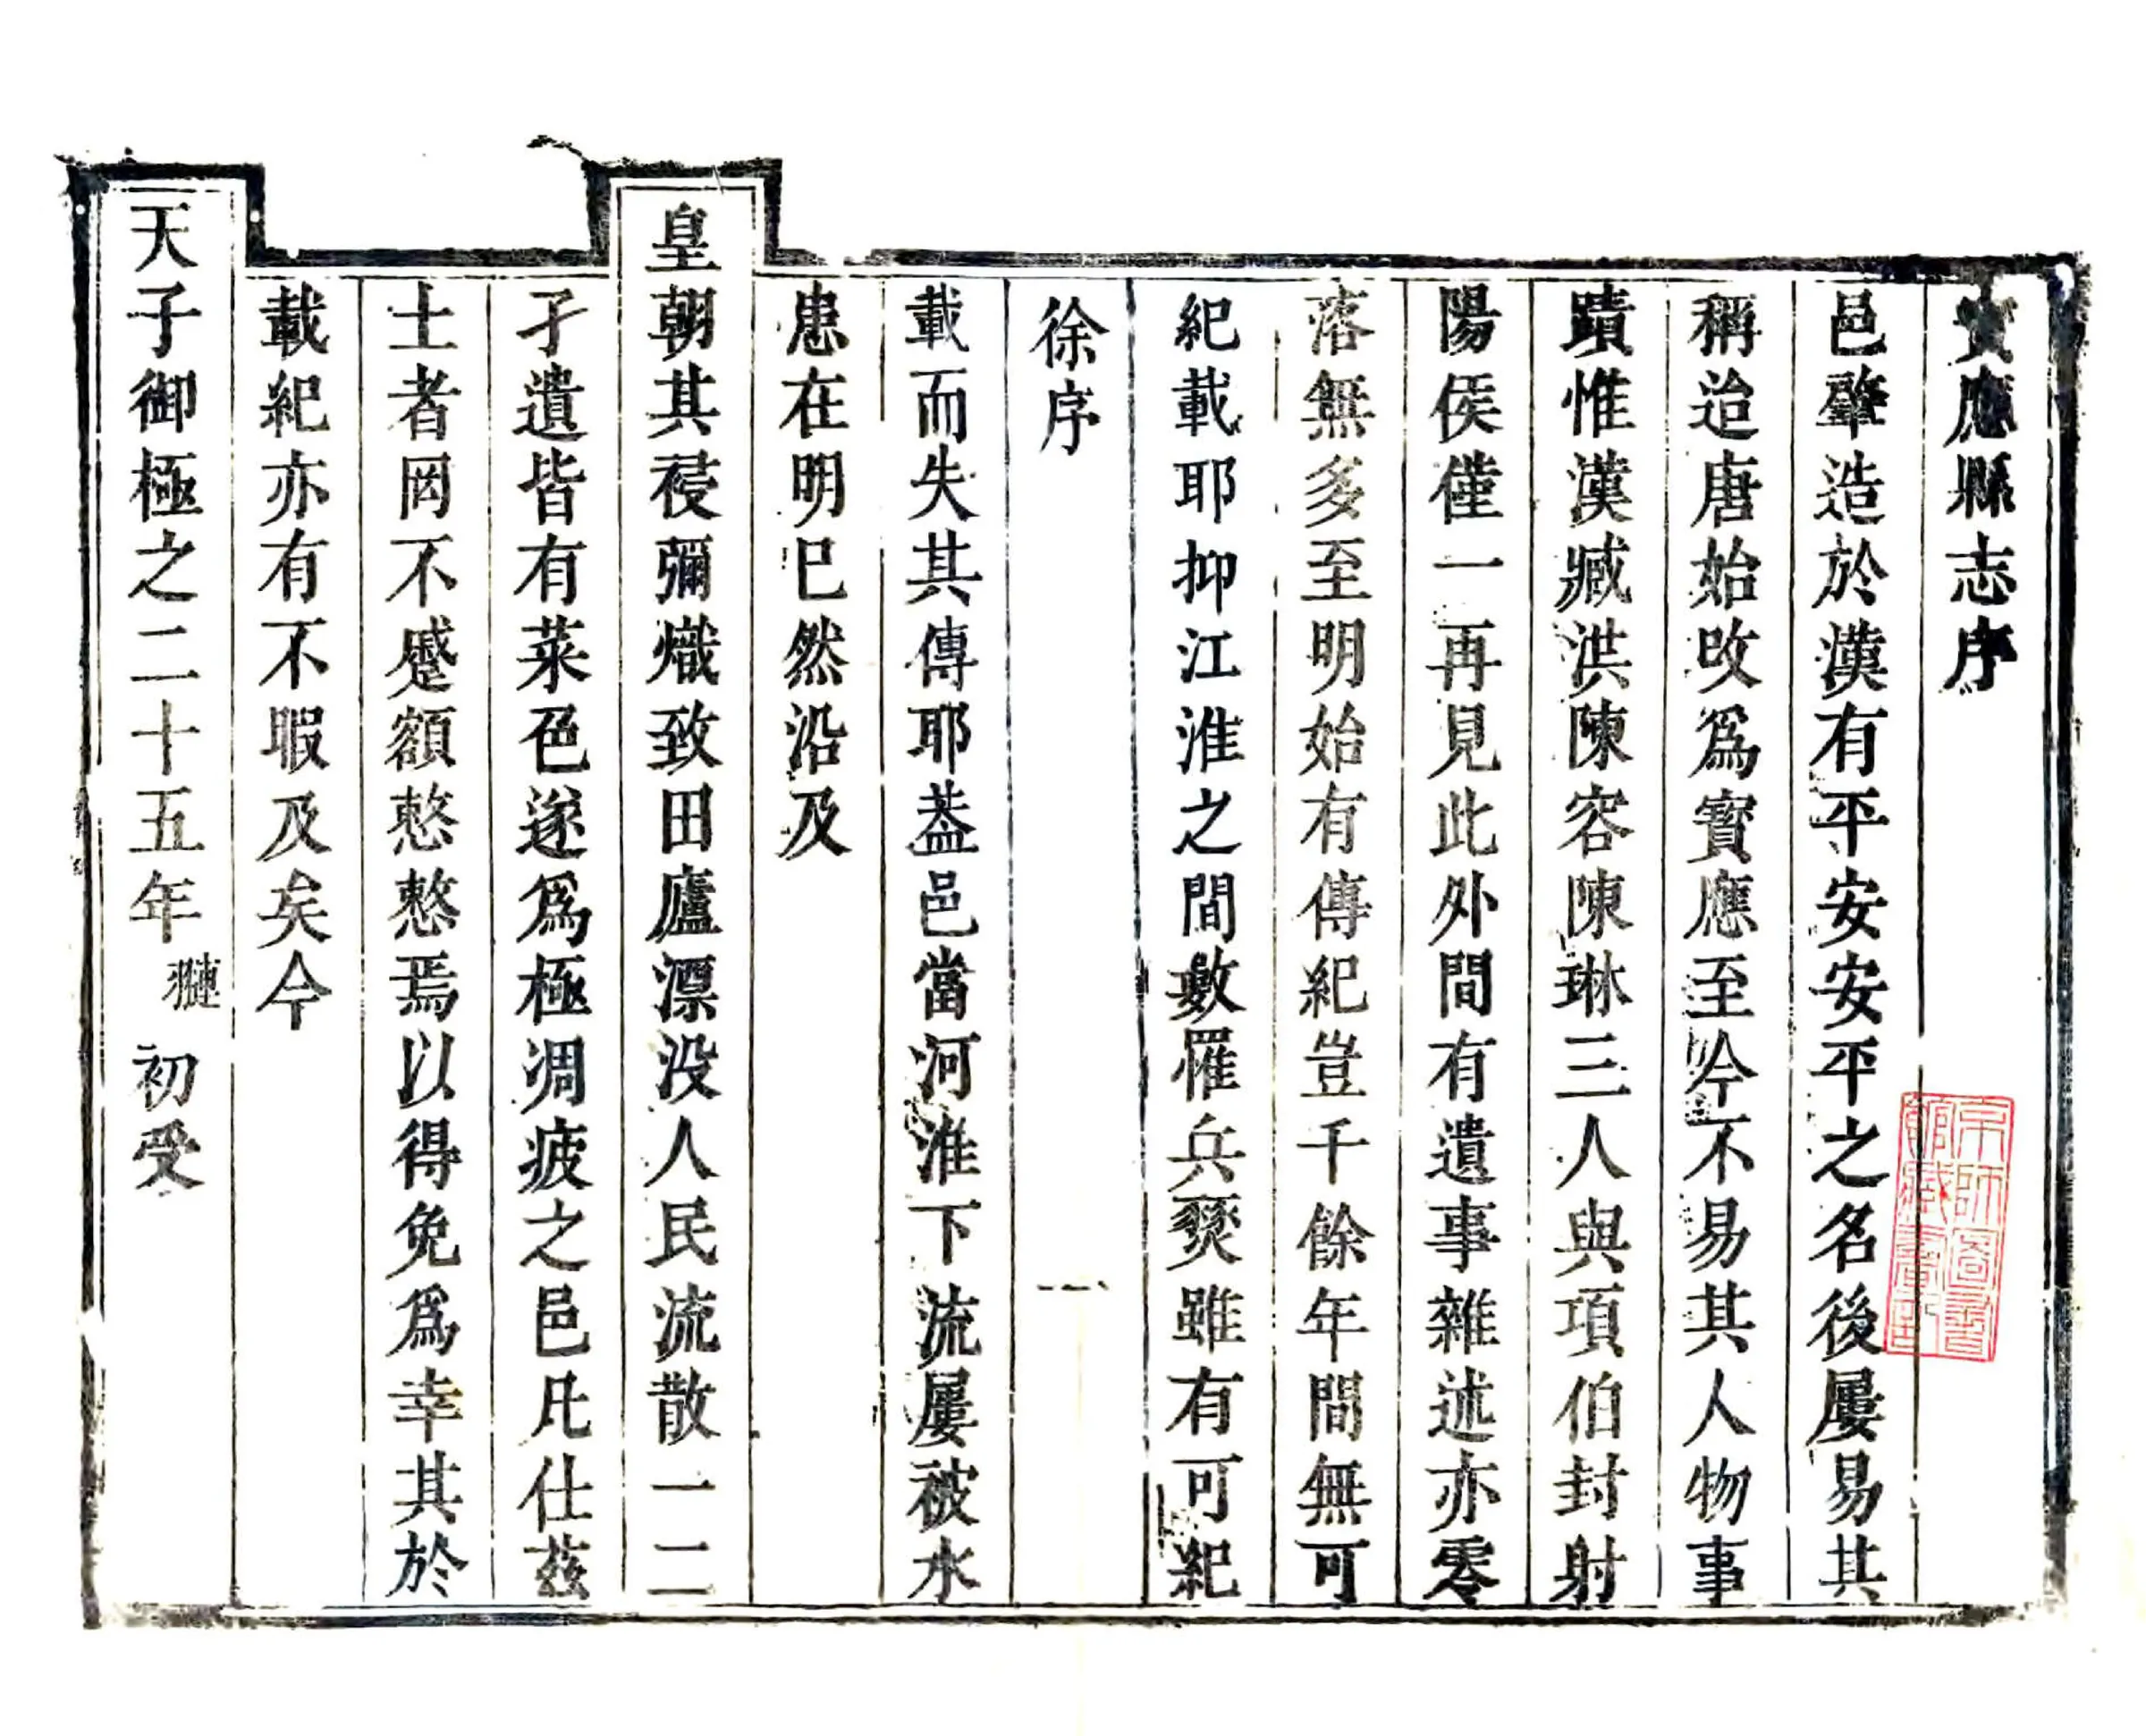 寶應縣志序
邑肇造於漢有平安安平之名後屢易其
稱迨唐始改爲寶應至今不易其人物事
蹟惟漢臧洪陳容陳琳三人與項伯封射
陽侯僅一再見此外間有遺事雜述亦零
落無多至明始有傳紀豈千餘年間無可
紀載耶抑江淮之間數罹兵燹雖有可紀
徐序
一
載而失其傳耶葢邑當河淮下流屢被水
患在明已然沿及
皇朝其祲彌熾致田廬漂没人民流散一二
孑遺皆有菜色遂爲極凋疲之邑凡仕茲
土者罔不蹙額愁愁焉以得免爲幸其於
載紀亦有不暇及矣今
天子御極之二十五年翴初受